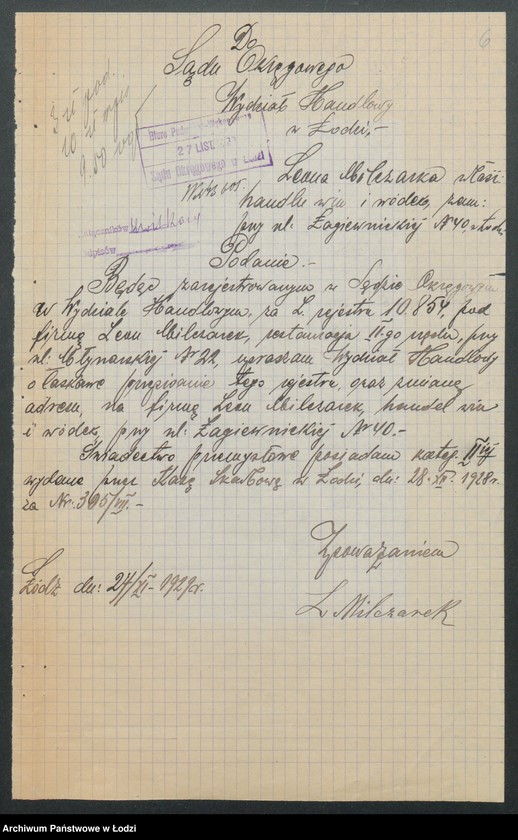 6
3 zł pod.
20 zł
9.50
Do
Sądu Okręgowego
Wydział Handlowy
w Łodzi,-
27 LIST.
Sądu Okręgowego w Łodzi
Leona Milczarka właśc:
handlu win i wódek, zam:
przy ul: Łagiewnickiej Nr 40, w Łodzi
Podanie.-
Będąc zarejestrowanym w Sądzie Okręgowym
w Wydziale Handlowym, za L. rejestru 10.854, pod
firmą Leon Milczarek, restauracja II-go rzędu, przy
ul. Młynarskiej Nr 22, upraszam Wydział Handlowy
o łaskawe przepisanie tego rejestru, oraz zmianę
adresu, na firmę Leon Milczarek, handel win
i wódek, przy ul: Łagiewnickiej Nr 40.-
Świadectwo przemysłowe posiadam kateg. II
wydane przez Kasę Skarbową w Łodzi, dn: 28.XII. 1928r.
za Nr. 395/III.-
Z poważaniem
Łódź dn: 27/XI-1929r.
L Milczarek
Archiwum Państwowe w Łodzi